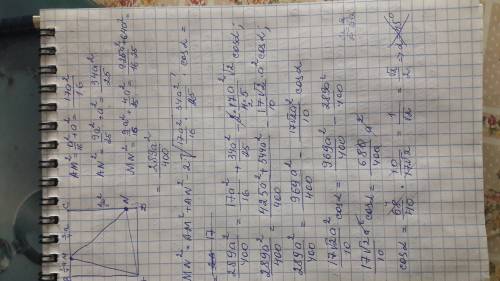 B a/4 M 3/4a C
N
AM² = a²/16 + a² = 17a²/16
AN² = 9a²/25 + a² = 34a²/25
MN² = 9a²/16 + 4a²/25 =
289a²/400
MN² = AM² + AN² - 2√(17a²/16 · 34a²/25) cosα =
289a²/400 = 17a²/16 + 34a²/25 - 2·17a²√2/4·5 cosα;
289a²/400 = 425a² + 544a²/400 - 17√2a²/10 cosα;
289a²/400 = 969a²/400 - 17√2a²/10 cosα
17√2a²/10 cosα = 969a²/400 - 289a²/400
17√2a²/10 cosα = 680/400 a²
cosα = 68/40 · 10/17√2 = 1/√2 = √2/2 ⇒